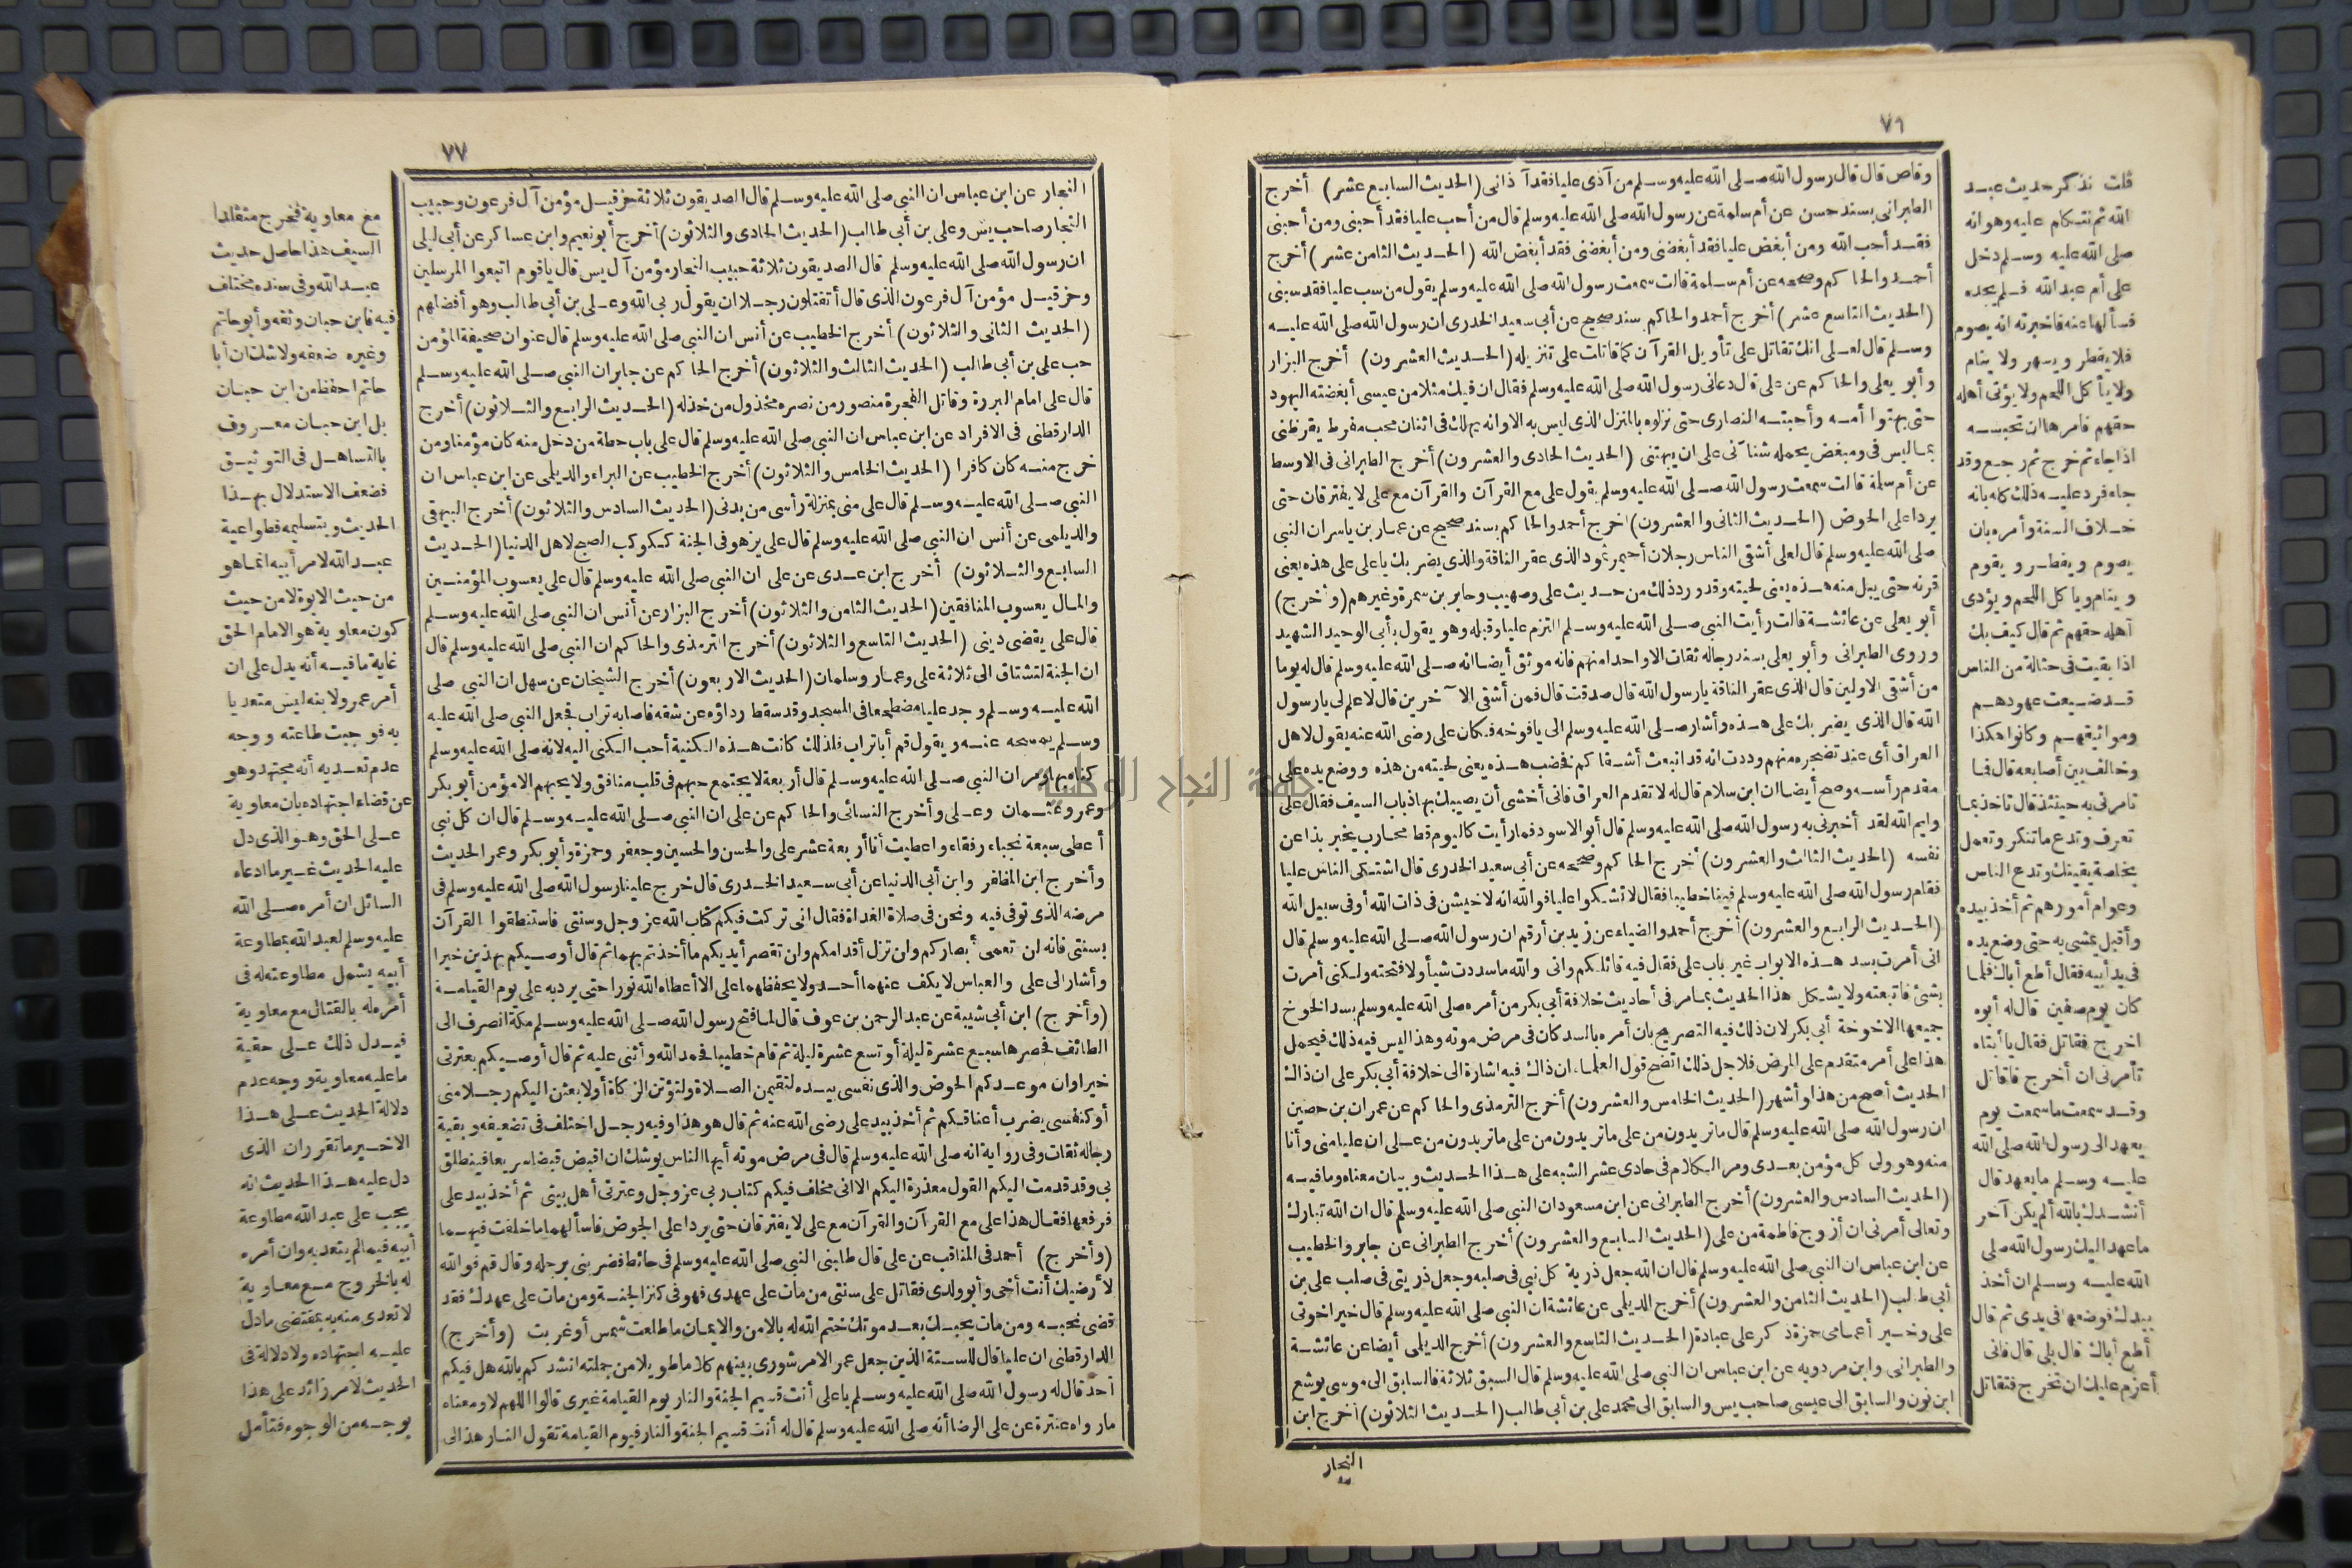 ٧٦
وقاص قال قال رسول الله صلى الله عليه وسلم من آذى عليا فقد آذانى (الحديث السابع عشر) أخرج
الطبرانى بسند حسن عن أم سلمة عن رسول الله صلى الله عليه وسلم قال من أحب عليا فقد أحبنى ومن أحبنى
فقد أحب الله ومن أبغض عليا فقد أبغضنى ومن أبغضنى فقد أبغض الله (الحديث الثامن عشر) أخرج
أحمد والحاكم وصححه عن أم سلمة قالت سمعت رسول الله صلى الله عليه وسلم يقول من سب عليا فقد سبنى
(الحديث التاسع عشر) أخرج أحمد والحاكم بسند صحيح عن أبى سعيد الخدرى ان رسول الله صلى الله عليه
وسلم قال لعلى انك تقاتل على تأويل القرآن كما قاتلت على تنزيله (الحديث العشرون) أخرج البزار
وأبو يعلى والحاكم عن على قال دعانى رسول الله صلى الله عليه وسلم فقال ان فيك مثلا من عيسى أبغضته اليهود
حتى بهتوا أمه وأحبته النصارى حتى نزلوه بالمنزل الذى ليس به الا وانه يهلك فى اثنان محب مفرط يقرظنى
بما ليس فى ومبغض يحمله شنآنى على ان يبهتنى (الحديث الحادى والعشرون) أخرج الطبرانى فى الاوسط
عن أم سلمة قالت سمعت رسول الله صلى الله عليه وسلم يقول على مع القرآن والقرآن مع على لا يفترقان حتى
يردا على الحوض (الحديث الثانى والعشرون) أخرج أحمد والحاكم بسند صحيح عن عمار بن ياسر ان النبى
صلى الله عليه وسلم قال لعلى أشقى الناس رجلان أحيمر ثمود الذى عقر الناقة والذى يضربك يا على على هذه يعنى
قرنه حتى يبل منه هذه يعنى لحيته وقد ورد ذلك من حديث على وصهيب وجابر بن سمرة وغيرهم (وأخرج)
أبو يعلى عن عائشة قالت رأيت النبى صلى الله عليه وسلم التزم عليا وقبله وهو يقول بأبى الوحيد الشهيد
وروى الطبرانى وأبو يعلى بسند رجاله ثقات الا واحدا منهم فانه موثق أيضا انه صلى الله عليه وسلم قال له يوما
من أشقى الاولين قال الذى عقر الناقة يا رسول الله قال صدقت قال فمن أشقى الآخرين قال لا علم لى يا رسول
الله قال الذى يضربك على هذه وأشار صلى الله عليه وسلم الى يافوخه فكان على رضى الله عنه يقول لاهل
العراق أى عند تضجره منهم وددت انه قد انبعث أشقاكم فخضب هذه يعنى لحيته من هذه ووضع يده على
مقدم رأسه وصح أيضا ان ابن سلام قال له لا تقدم العراق فانى أخشى أن يصيبك بها ذباب السيف فقال على
وايم الله لقد أخبرنى به رسول الله صلى الله عليه وسلم قال أبو الاسود فما رأيت كاليوم قط محارب يخبر بذا عن
نفسه (الحديث الثالث والعشرون) أخرج الحاكم وصححه عن أبى سعيد الخدرى قال اشتكى الناس عليا
فقام رسول الله صلى الله عليه وسلم فينا خطيبا فقال لا تشكوا عليا فو الله انه لاخيشن فى ذات الله أو فى سبيل الله
(الحديث الرابع والعشرون) أخرج أحمد والضياء عن زيد بن أرقم ان رسول الله صلى الله عليه وسلم قال
انى أمرت بسد هذه الابواب غير باب على فقال فيه قائلكم وانى والله ما سددت شيأ ولا فتحته ولكنى أمرت
بشئ فاتبعته ولا يشكل هذا الحديث بما مر فى أحاديث خلافة أبى بكر من أمره صلى الله عليه وسلم بسد الخوخ
جميعها الا خوخة أبى بكر لان ذلك فيه التصريح بان أمره بالسد كان فى مرض موته وهذا ليس فيه ذلك فيحمل
هذا على أمر متقدم على المرض فلاجل ذلك اتضح قول العلماء ان ذاك فيه اشارة الى خلافة أبى بكر على ان ذاك
الحديث أصح من هذا وأشهر (الحديث الخامس والعشرون) أخرج الترمذى والحاكم عن عمران بن حصين
ان رسول الله صلى الله عليه وسلم قال ما تريدون من على ما تريدون من على ما تريدون من على ان عليا منى وأنا
منه وهو ولى كل مؤمن بعدى ومر الكلام فى حادى عشر الشبه على هذا الحديث وبيان معناه وما فيه
(الحديث السادس والعشرون) أخرج الطبرانى عن ابن مسعود ان النبى صلى الله عليه وسلم قال ان الله تبارك
وتعالى أمرنى ان أزوج فاطمة من على (الحديث السابع والعشرون) أخرج الطبرانى عن جابر والخطيب
عن ابن عباس ان النبى صلى الله عليه وسلم قال ان الله جعل ذرية كل نبى فى صلبه وجعل ذريتى فى صلب على بن
أبى طالب (الحديث الثامن والعشرون) أخرج الديلمى عن عائشة ان النبى صلى الله عليه وسلم قال خير اخوتى
على وخير أعمامى حمزة ذكر على عبادة (الحديث التاسع والعشرون) أخرج الديلمى أيضا عن عائشة
والطبرانى وابن مردويه عن ابن عباس ان النبى صلى الله عليه وسلم قال السبق ثلاثة فالسابق الى موسى يوشع
ابن نون والسابق الى عيسى صاحب يس والسابق الى محمد على بن أبى طالب (الحديث الثلاثون) أخرج ابن
النجار
قلت نذكر حديث عبد
الله ثم نتكلم عليه وهو انه
صلى الله عليه وسلم دخل
على أم عبد الله فلم يجده
فسألها عنه فاخبرته انه يصوم
فلا يفطر ويسهر ولا ينام
ولا يأكل اللحم ولا يؤتى أهله
حقهم فامرها ان تحبسه
اذا جاء ثم خرج ثم رجع وقد
جاء فرد عليه ذلك كله بانه
خلاف السنة وأمره بان
يصوم ويفطر ويقوم
وينام ويأكل اللحم ويؤدى
أهله حقهم ثم قال كيف بك
اذا بقيت فى حثالة من الناس
قد ضيعت عهودهم
ومواثيقهم وكانوا هكذا
وخالف بين أصابعه قال فما
تامرنى به حينئذ قال تاخذ بما
تعرف وتدع ما تنكر وتعمل
بخاصة يقينك وتدع الناس
وعوام أمورهم ثم أخذ بيده
وأقبل يمشى به حتى وضع يده
فى يد أبيه فقال أطع أباك فلما
كان يوم صفين قال له أبوه
اخرج فقاتل فقال يا أبتاه
تأمرنى ان أخرج فاقاتل
وقد سمعت ما سمعت يوم
يعهد الى رسول الله صلى الله
عليه وسلم ما يعهد قال
أنشدك بالله ألم يكن آخر
ما عهد اليك رسول الله صلى
الله عليه وسلم ان أخذ
بيدك فوضعها فى يدى ثم قال
أطع أباك قال بلى قال فانى
أعزم عليك ان تخرج فتقاتل
٧٧
النجار عن ابن عباس ان النبى صلى الله عليه وسلم قال الصديقون ثلاثة حزقيل مؤمن آل فرعون وحبيب
النجار صاحب يس وعلى بن أبى طالب (الحديث الحادى والثلاثون) أخرج أبو نعيم وابن عساكر عن أبى ليلى
ان رسول الله صلى الله عليه وسلم قال الصديقون ثلاثة حبيب النجار مؤمن آل يس قال يا قوم اتبعوا المرسلين
وحزقيل مؤمن آل فرعون الذى قال أتقتلون رجلا ان يقول ربى الله وعلى بن أبى طالب وهو أفضلهم
(الحديث الثانى والثلاثون) أخرج الخطيب عن أنس ان النبى صلى الله عليه وسلم قال عنوان صحيفة المؤمن
حب على بن أبى طالب (الحديث الثالث والثلاثون) أخرج الحاكم عن جابر ان النبى صلى الله عليه وسلم
قال على امام البررة وقاتل الفجرة منصور من نصره مخذول من خذله (الحديث الرابع والثلاثون) أخرج
الدارقطنى فى الافراد عن ابن عباس ان النبى صلى الله عليه وسلم قال على باب حطة من دخل منه كان مؤمنا ومن
خرج منه كان كافرا (الحديث الخامس والثلاثون) أخرج الخطيب عن البراء والديلمى عن ابن عباس ان
النبى صلى الله عليه وسلم قال على منى بمنزلة رأسى من بدنى (الحديث السادس والثلاثون) أخرج البيهقى
والديلمى عن أنس ان النبى صلى الله عليه وسلم قال على يزهو فى الجنة ككوكب الصبح لاهل الدنيا (الحديث
السابع والثلاثون) أخرج ابن عدى عن على ان النبى صلى الله عليه وسلم قال على يعسوب المؤمنين
والمال يعسوب المنافقين (الحديث الثامن والثلاثون) أخرج البزار عن أنس ان النبى صلى الله عليه وسلم
قال على يقضى دينى (الحديث التاسع والثلاثون) أخرج الترمذى والحاكم ان النبى صلى الله عليه وسلم قال
ان الجنة لتشتاق الى ثلاثة على وعمار وسلمان (الحديث الاربعون) أخرج الشيخان عن سهل ان النبى صلى
الله عليه وسلم وجد عليا مضطجعا فى المسجد وقد سقط رداؤه عن شقه فاصابه تراب فجعل النبى صلى الله عليه
وسلم يمسحه عنه ويقول قم أبا تراب فلذلك كانت هذه الكنية أحب الكنى اليه لانه صلى الله عليه وسلم
كناه بها ومر ان النبى صلى الله عليه وسلم قال أربعة لا يجتمع حبهم فى قلب منافق ولا يحبهم الا مؤمن أبو بكر
وعمر وعثمان وعلى وأخرج النسائى والحاكم عن على ان النبى صلى الله عليه وسلم قال ان كل نبى
أعطى سبعة نجباء رفقاء وأعطيت أنا أربعة عشر على والحسن والحسين وجعفر وحمزة وأبو بكر وعمر الحديث
وأخرج ابن المظفر وابن أبى الدنيا عن أبى سعيد الخدرى قال خرج علينا رسول الله صلى الله عليه وسلم فى
مرضه الذى توفى فيه ونحن فى صلاة الغداة فقال انى تركت فيكم كتاب الله عز وجل وسنتى فاستنطقوا القرآن
بسنتى فانه لن تعمى أبصاركم ولن تزل أقدامكم ولن تقصر أيديكم ما أخذتم بهما ثم قال أوصيكم بهذين خيرا
وأشار الى على والعباس لا يكف عنهما أحد ولا يحفظهما على الا أعطاه الله نورا حتى يرد به على يوم القيامة
(وأخرج) ابن أبى شيبة عن عبد الرحمن بن عوف قال لما فتح رسول الله صلى الله عليه وسلم مكة انصرف الى
الطائف فحصرها سبع عشرة ليلة أو تسع عشرة ليلة ثم قام خطيبا فحمد الله وأثنى عليه ثم قال أوصيكم بعترتى
خيرا وان موعدكم الحوض والذى نفسى بيده لتقيمن الصلاة ولتؤتن الزكاة أو لابعثن اليكم رجلا منى
أو كنفسى يضرب أعناقكم ثم أخذ بيد على رضى الله عنه ثم قال هو هذا وفيه رجل اختلف فى تضعيفه وبقية
رجاله ثقات وفى رواية انه صلى الله عليه وسلم قال فى مرض موته أيها الناس يوشك ان اقبض قبضا سريعا فينطلق
بى وقد قدمت اليكم القول معذرة اليكم الا انى مخلف فيكم كتاب ربى عز وجل وعترتى أهل بيتى ثم أخذ بيد على
فرفعها فقال هذا على مع القرآن والقرآن مع على لا يفترقان حتى يردا على الحوض فاسألهما ما خلفت فيهما
(وأخرج) أحمد فى المناقب عن على قال طلبنى النبى صلى الله عليه وسلم فى حائط فضربنى برجله وقال قم فو الله
لأرضينك أنت أخى وأبو ولدى فقاتل على سنتى من مات على عهدى فهو فى كنز الجنة ومن مات على عهدك فقد
قضى نحبه ومن مات يحبك بعد موتك ختم الله له بالامن والايمان ما طلعت شمس أو غربت (وأخرج)
الدارقطنى ان عليا قال للستة الذين جعل عمر الامر شورى بينهم كلاما طويلا من جملته انشدكم بالله هل فيكم
أحد قال له رسول الله صلى الله عليه وسلم يا على أنت قسيم الجنة والنار يوم القيامة غيرى قالوا اللهم لا ومعناه
ما رواه عنترة عن على الرضا أنه صلى الله عليه وسلم قال له أنت قسيم الجنة والنار فيوم القيامة تقول النار هذا لى
مع معاوية فخرج متقلدا
السيف هذا حاصل حديث
عبد الله وفى سنده مختلف
فيه فابن حبان وثقه وأبو حاتم
وغيره ضعفه ولا شك ان أبا
حاتم احفظ من ابن حبان
بل ابن حبان معروف
بالتساهل فى التوثيق
فضعف الاستدلال بهذا
الحديث وبتسليمه فطواعية
عبد الله لامر أبيه انما هو
من حيث الابوة لا من حيث
كون معاوية هو الامام الحق
غاية ما فيه أنه يدل على ان
أمر عمرو لابنه ليس متعديا
به فوجبت طاعته ووجه
عدم تعديه أنه مجتهد وهو
عن قضاء اجتهاده بان معاوية
على الحق وهو الذى دل
عليه الحديث غير ما ادعاه
السائل ان أمره صلى الله
عليه وسلم لعبد الله بمطاوعة
أبيه يشمل مطاوعته له فى
أمره له بالقتال مع معاوية
فيدل ذلك على حقية
ما عليه معاوية ووجه عدم
دلالة الحديث على هذا
الاخير ما تقرر ان الذى
دل عليه هذا الحديث انه
يجب على عبد الله مطاوعة
أبيه فيما لم يتعد به وان أمره
له بالخروج مع معاوية
لا تعدى منه به بمقتضى ما دل
عليه اجتهاده ولا دلالة فى
الحديث لامر زائد على هذا
بوجه من الوجوه فتأمل
جامعة النجاح الوطنية